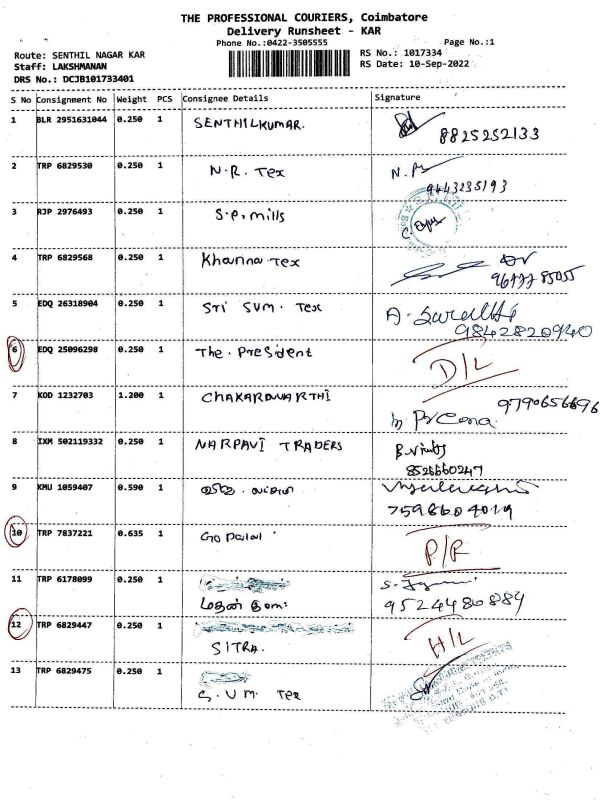 THE PROFESSIONAL COURIERS, Coimbatore
Delivery Runsheet - KAR
Phone No.:0422-3505555
Page No.:1
Route: SENTHIL NAGAR KAR
RS No.: 1017334
Staff: LAKSHMANAN
RS Date: 10-Sep-2022
DRS No.: DCJB101733401
S No Consignment No Weight PCS Consignee Details Signature
1 BLR 2951631044 0.250 1 SENTHILKUMAR.
8825252133
2 TRP 6829530 0.250 1 N.R. Tex
9443235193
3 RJP 2976493 0.250 1 S.P. mills
4 TRP 6829568 0.250 1 Khanna Tex
5 EDQ 26318904 0.250 1 Sri SVM. Tex
9842820940
6 EDQ 25096298 0.250 1 The. President D/L
7 KOD 1232703 1.200 1 CHAKARAVARTHI 9790656696
8 IXM 502119332 0.250 1 NARPAVI TRADERS
8526660247
9 KMU 1059407 0.590 1
7598604019
10 TRP 7837221 0.635 1 Gopalal P/R
11 TRP 6178099 0.250 1
9524480884
12 TRP 6829447 0.250 1 H/L
SITRA.
13 TRP 6829475 0.250 1
S.V.M. Tex